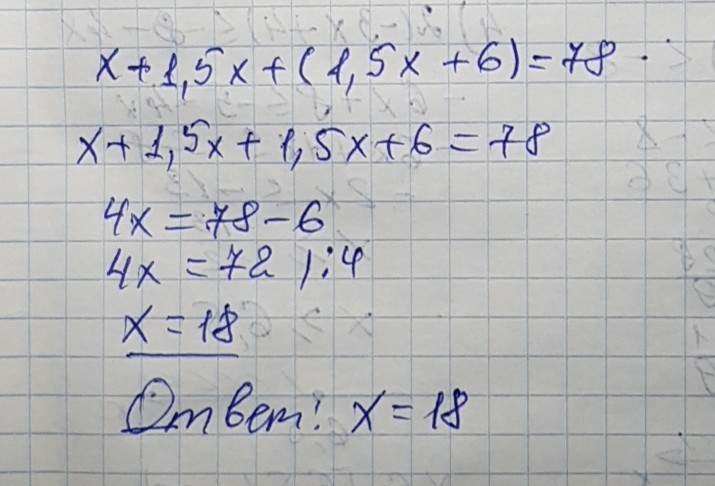 x+1,5x+(1,5x+6)=78.
x+1,5x+1,5x+6=78
4x=78-6
4x=72 |:4
x=18
Ответ: x=18